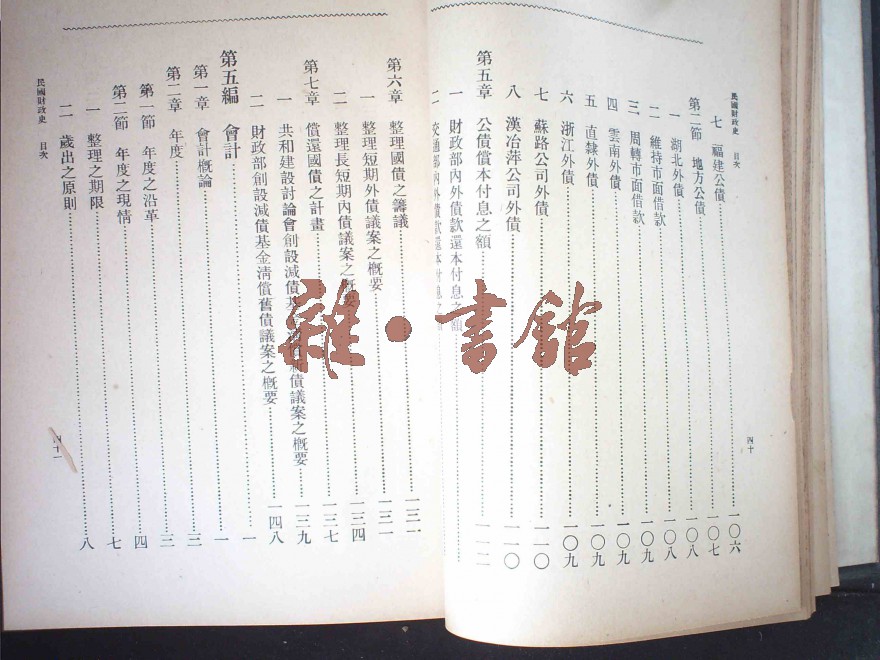 民國財政史 目次
七 福建公債 一〇六
第二節 地方公債 一〇七
一 湖北外債 一〇八
二 維持市面借款 一〇八
三 周轉市面借款 一〇九
四 雲南外債 一〇九
五 直隸外債 一〇九
六 浙江外債 一〇九
七 蘇路公司外債 一一〇
八 漢冶萍公司外債 一一〇
第五章 公債償本付息之額 一一二
一 財政部內外債款還本付息之額
二 交通部內外債款還本付息之
四十
第六章 整理國債之籌議 一三一
一 整理短期外債議案之概要 一三一
二 整理長短期內債議案之概要 一三四
第七章 償還國債之計畫 一三七
一 共和建設討論會創設減債基 債議案之概要 一三九
二 財政部創設減債基金清償舊債議案之概要 一四八
第五編 會計 一
第一章 會計概論 一
第二章 年度 三
第一節 年度之沿革 三
第二節 年度之現情 四
一 整理之期限 七
二 歲出之原則 八
民國財政史 目次
四十一
雜·書館